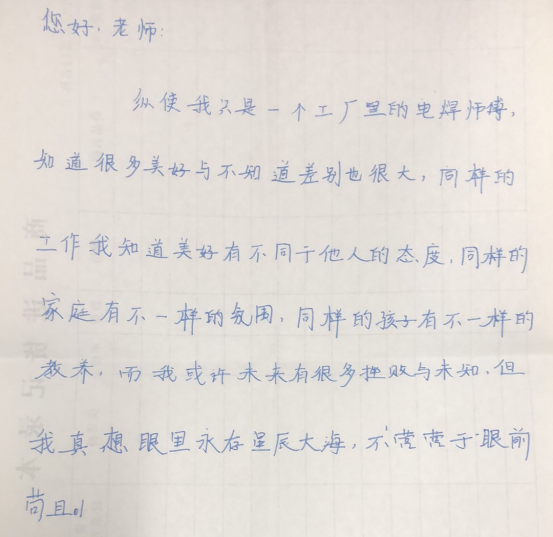 您好，老师：
纵使我只是一个工厂里的电焊师搏，
知道很多美好与不知道差别也很大，同样的
工作我知道美好有不同于他人的态度，同样的
家庭有不一样的氛围，同样的孩子有不一样的
教养，而我或许未来有很多挫败与未知，但
我真想眼里永存星辰大海，不营营于眼前
苟且。